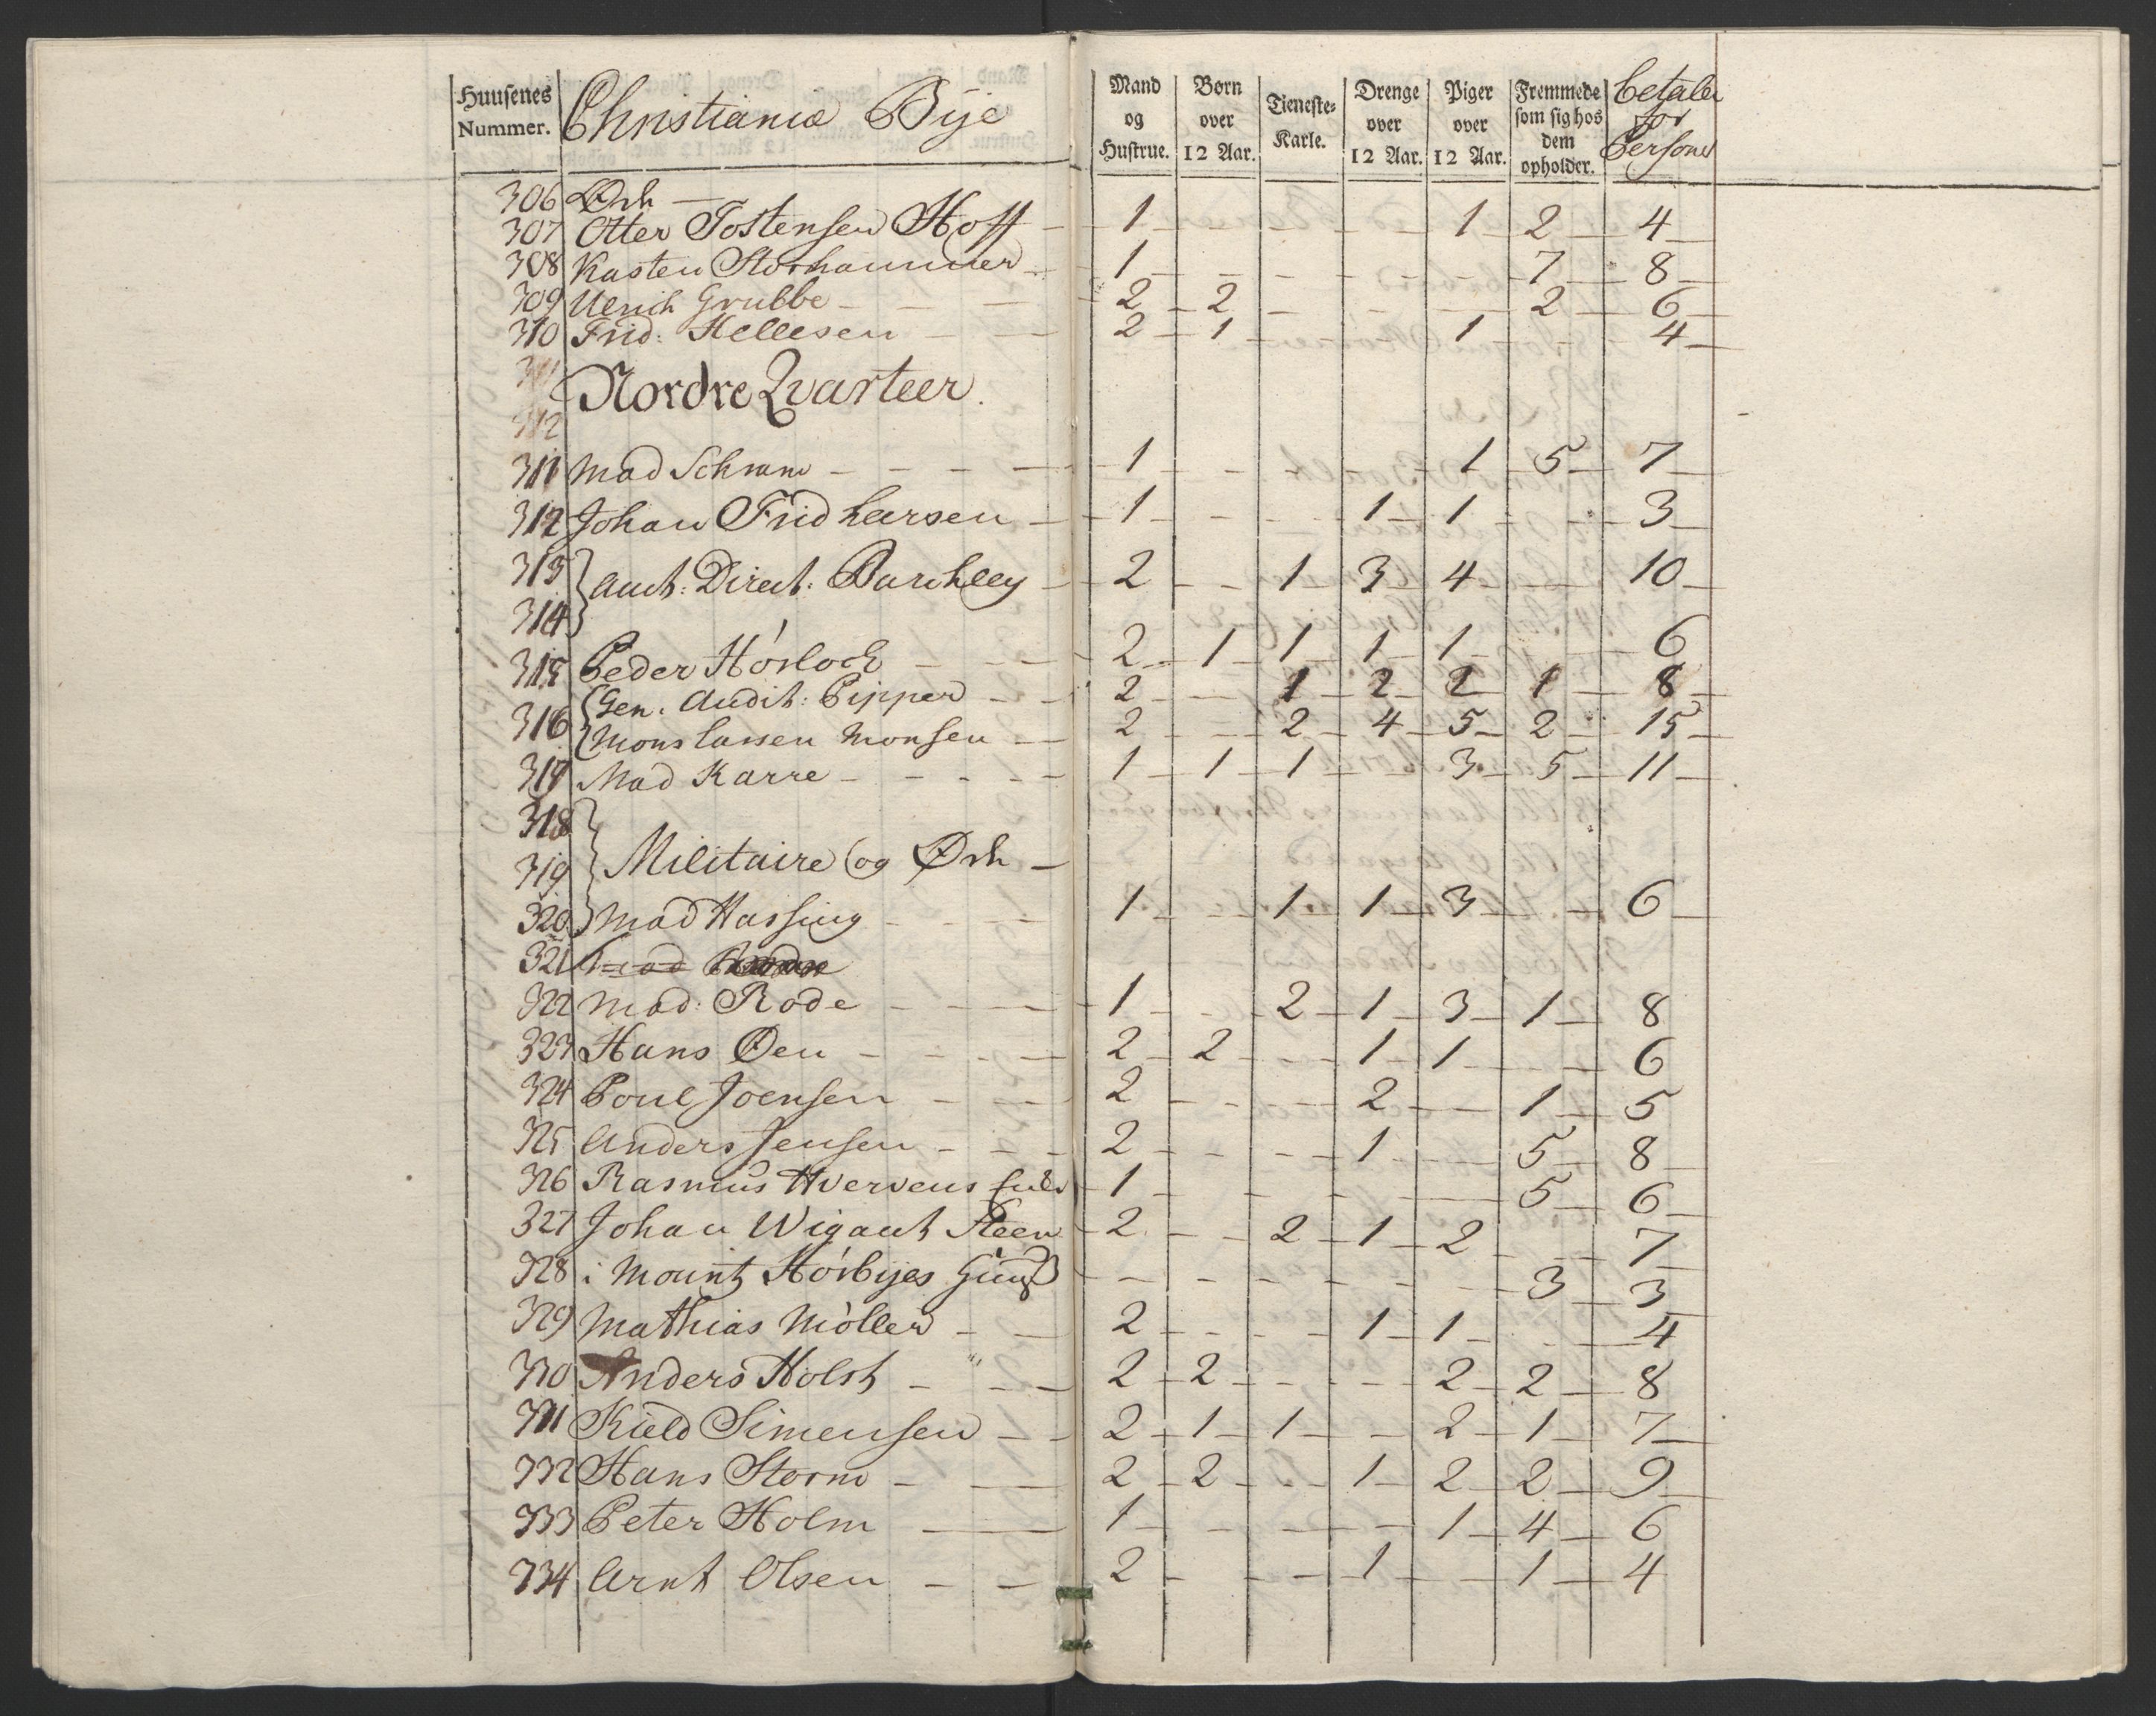 Huusenes Nummer. Christiania Bÿe Mand og Hustrue. Børn over 12 Aar. Tieneste-Karle. Drenge over 12 Aar. Piger over 12 Aar. Fremmede som sig hos dem opholder. betaler for Personer
306 Öde —
307 Otter Tostensen Hoff 1 - - - - 1 2 4
308 Kasten Storhammer 1 - - - - - 7 8
309 Ulrich Grubbe 2 2 - - - 2 6
310 Frid: Hellesen 2 1 - - 1 - 4
311
Nordre Qvarteer.
312
311 Mad Schram 1 - - - 1 5 7
312 Johan Frid Larsen 1 - - 1 1 - 3
313 } Auct: Direct: 2 - 1 3 4 - 10
314
315 Peder Hörloch 2 1 1 1 1 - 6
316 { Gen. Audit: Pipper 2 - 1 2 2 1 8
{ Mons Larsen Monsen 2 - 2 4 5 2 15
317 Mad Karre 1 1 1 - 3 5 11
318
319 } Militaire og —
320 Mad Hassing 1 - 1 1 3 - 6
321 Mad
322 Mad: Rode 1 - 2 1 3 1 8
323 Hans Øen 2 2 - 1 1 - 6
324 Poul Joensen 2 - - 2 - 1 5
325 Anders Jensen 2 - - 1 - 5 8
326 Rasmus Hvervens Enke 1 - - - - 5 6
327 Johan Wigant Steen 2 - 2 1 2 - 7
328 i Mountz Hörbÿes - - - - - 3 3
329 Mathias Möller 2 - - 1 1 - 4
330 Anders Holst 2 2 - - 2 2 8
331 Kield Simensen 2 1 1 - 2 1 7
332 Hans Storm 2 2 - 1 2 2 9
333 Peter Holm 1 - - - 1 4 6
334 Arnt Olsen 2 - - 1 - 1 4